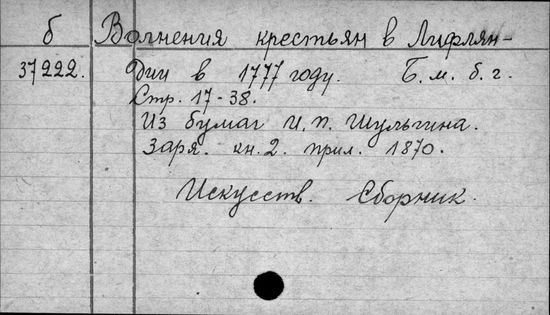 б Волнения крестьян в Лифлян-
37222. дии в 1777 году. Б. м. б. г.
Стр. 17-38.
Из бумаг И. П. Шульгина.
Заря. кн. 2. прил. 1870.
Искусств. Сборник.